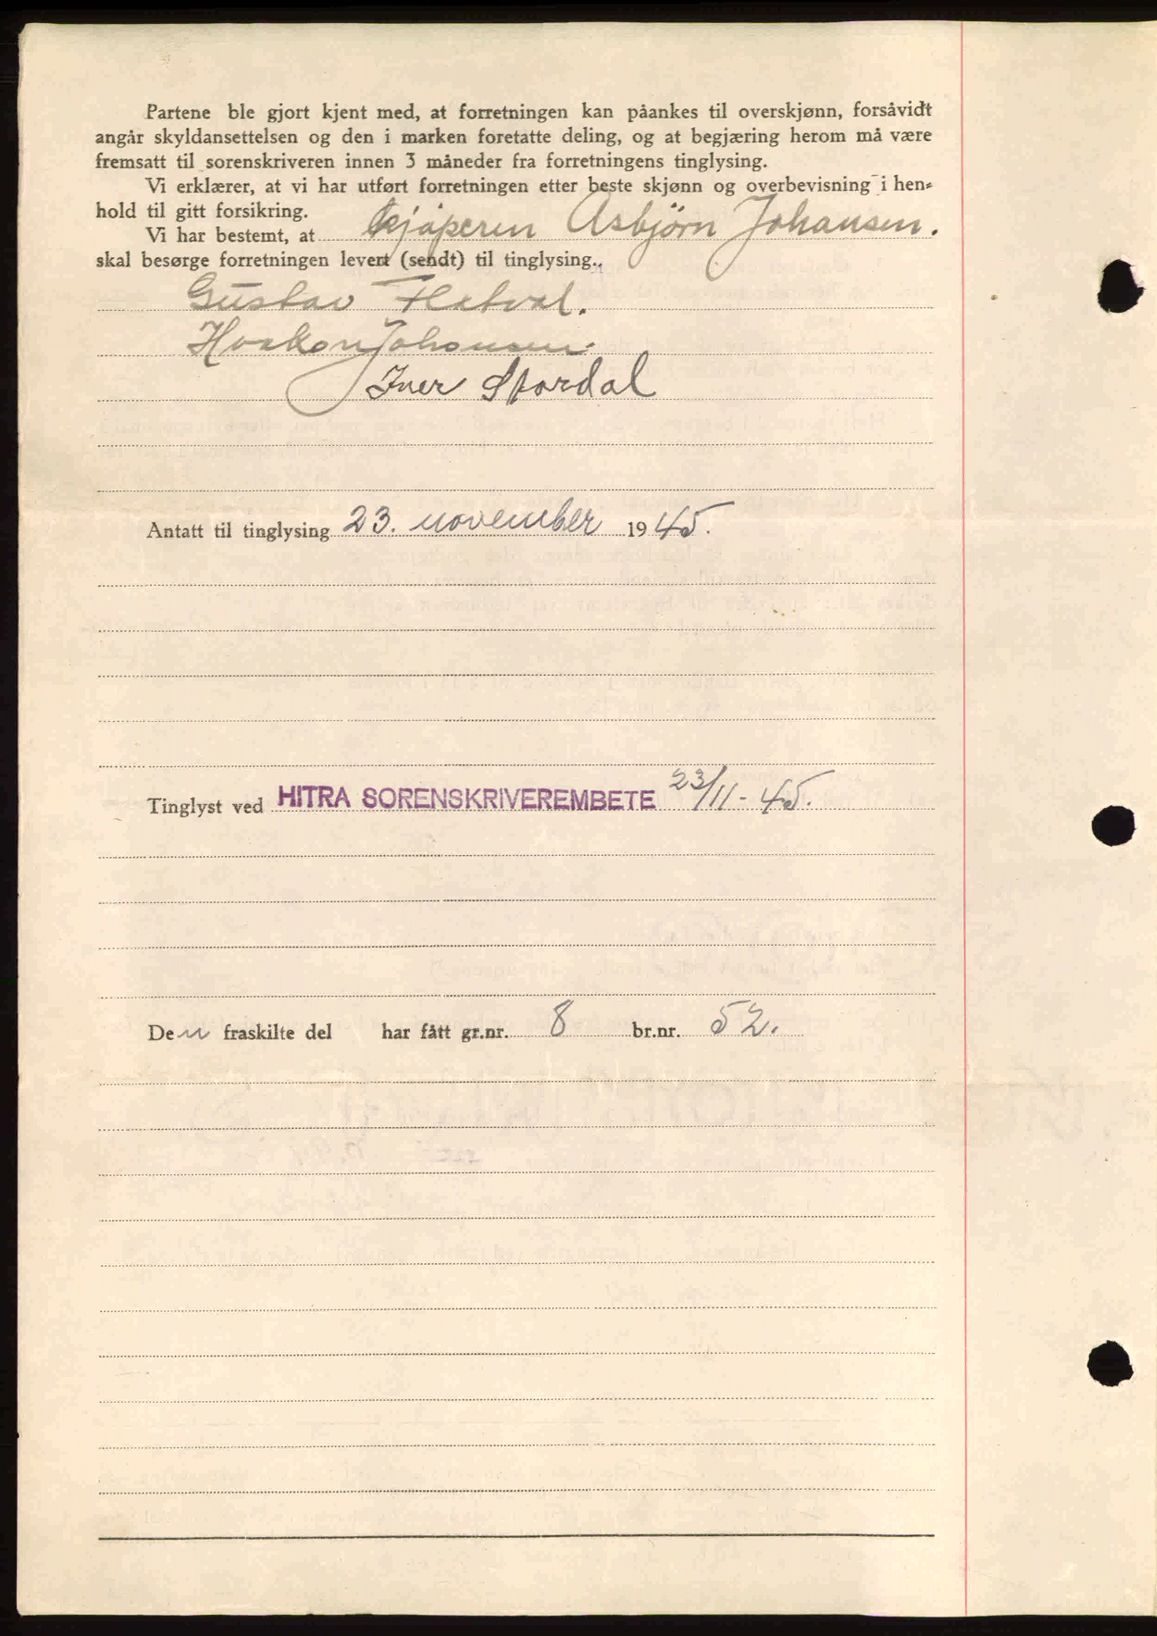 Partene ble gjort kjent med, at forretningen kan påankes til overskjønn, forsåvidt
angår skyldansettelsen og den i marken foretatte deling, og at begjæring herom må være
fremsatt til sorenskriveren innen 3 måneder fra forretningens tinglysing.
Vi erklærer, at vi har utført forretningen etter beste skjønn og overbevisning i hen-
hold til gitt forsikring.
Vi har bestemt, at kjøperen Asbjørn Johansen.
skal besørge forretningen levert (sendt) til tinglysing.
Gustav
Haakon Johansen.
Iver Stordal
Antatt til tinglysing 23. november 1945.
Tinglyst ved HITRA SORENSKRIVEREMBETE 23/11-45.
Den fraskilte del har fått gr.nr. 8 br.nr. 52.